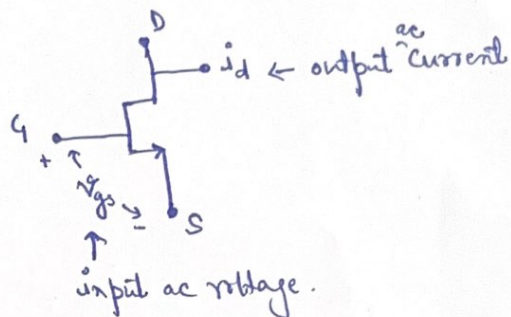 D
ac
i_d ← output ^ current
G
+
v_gs
-
S
input ac voltage.